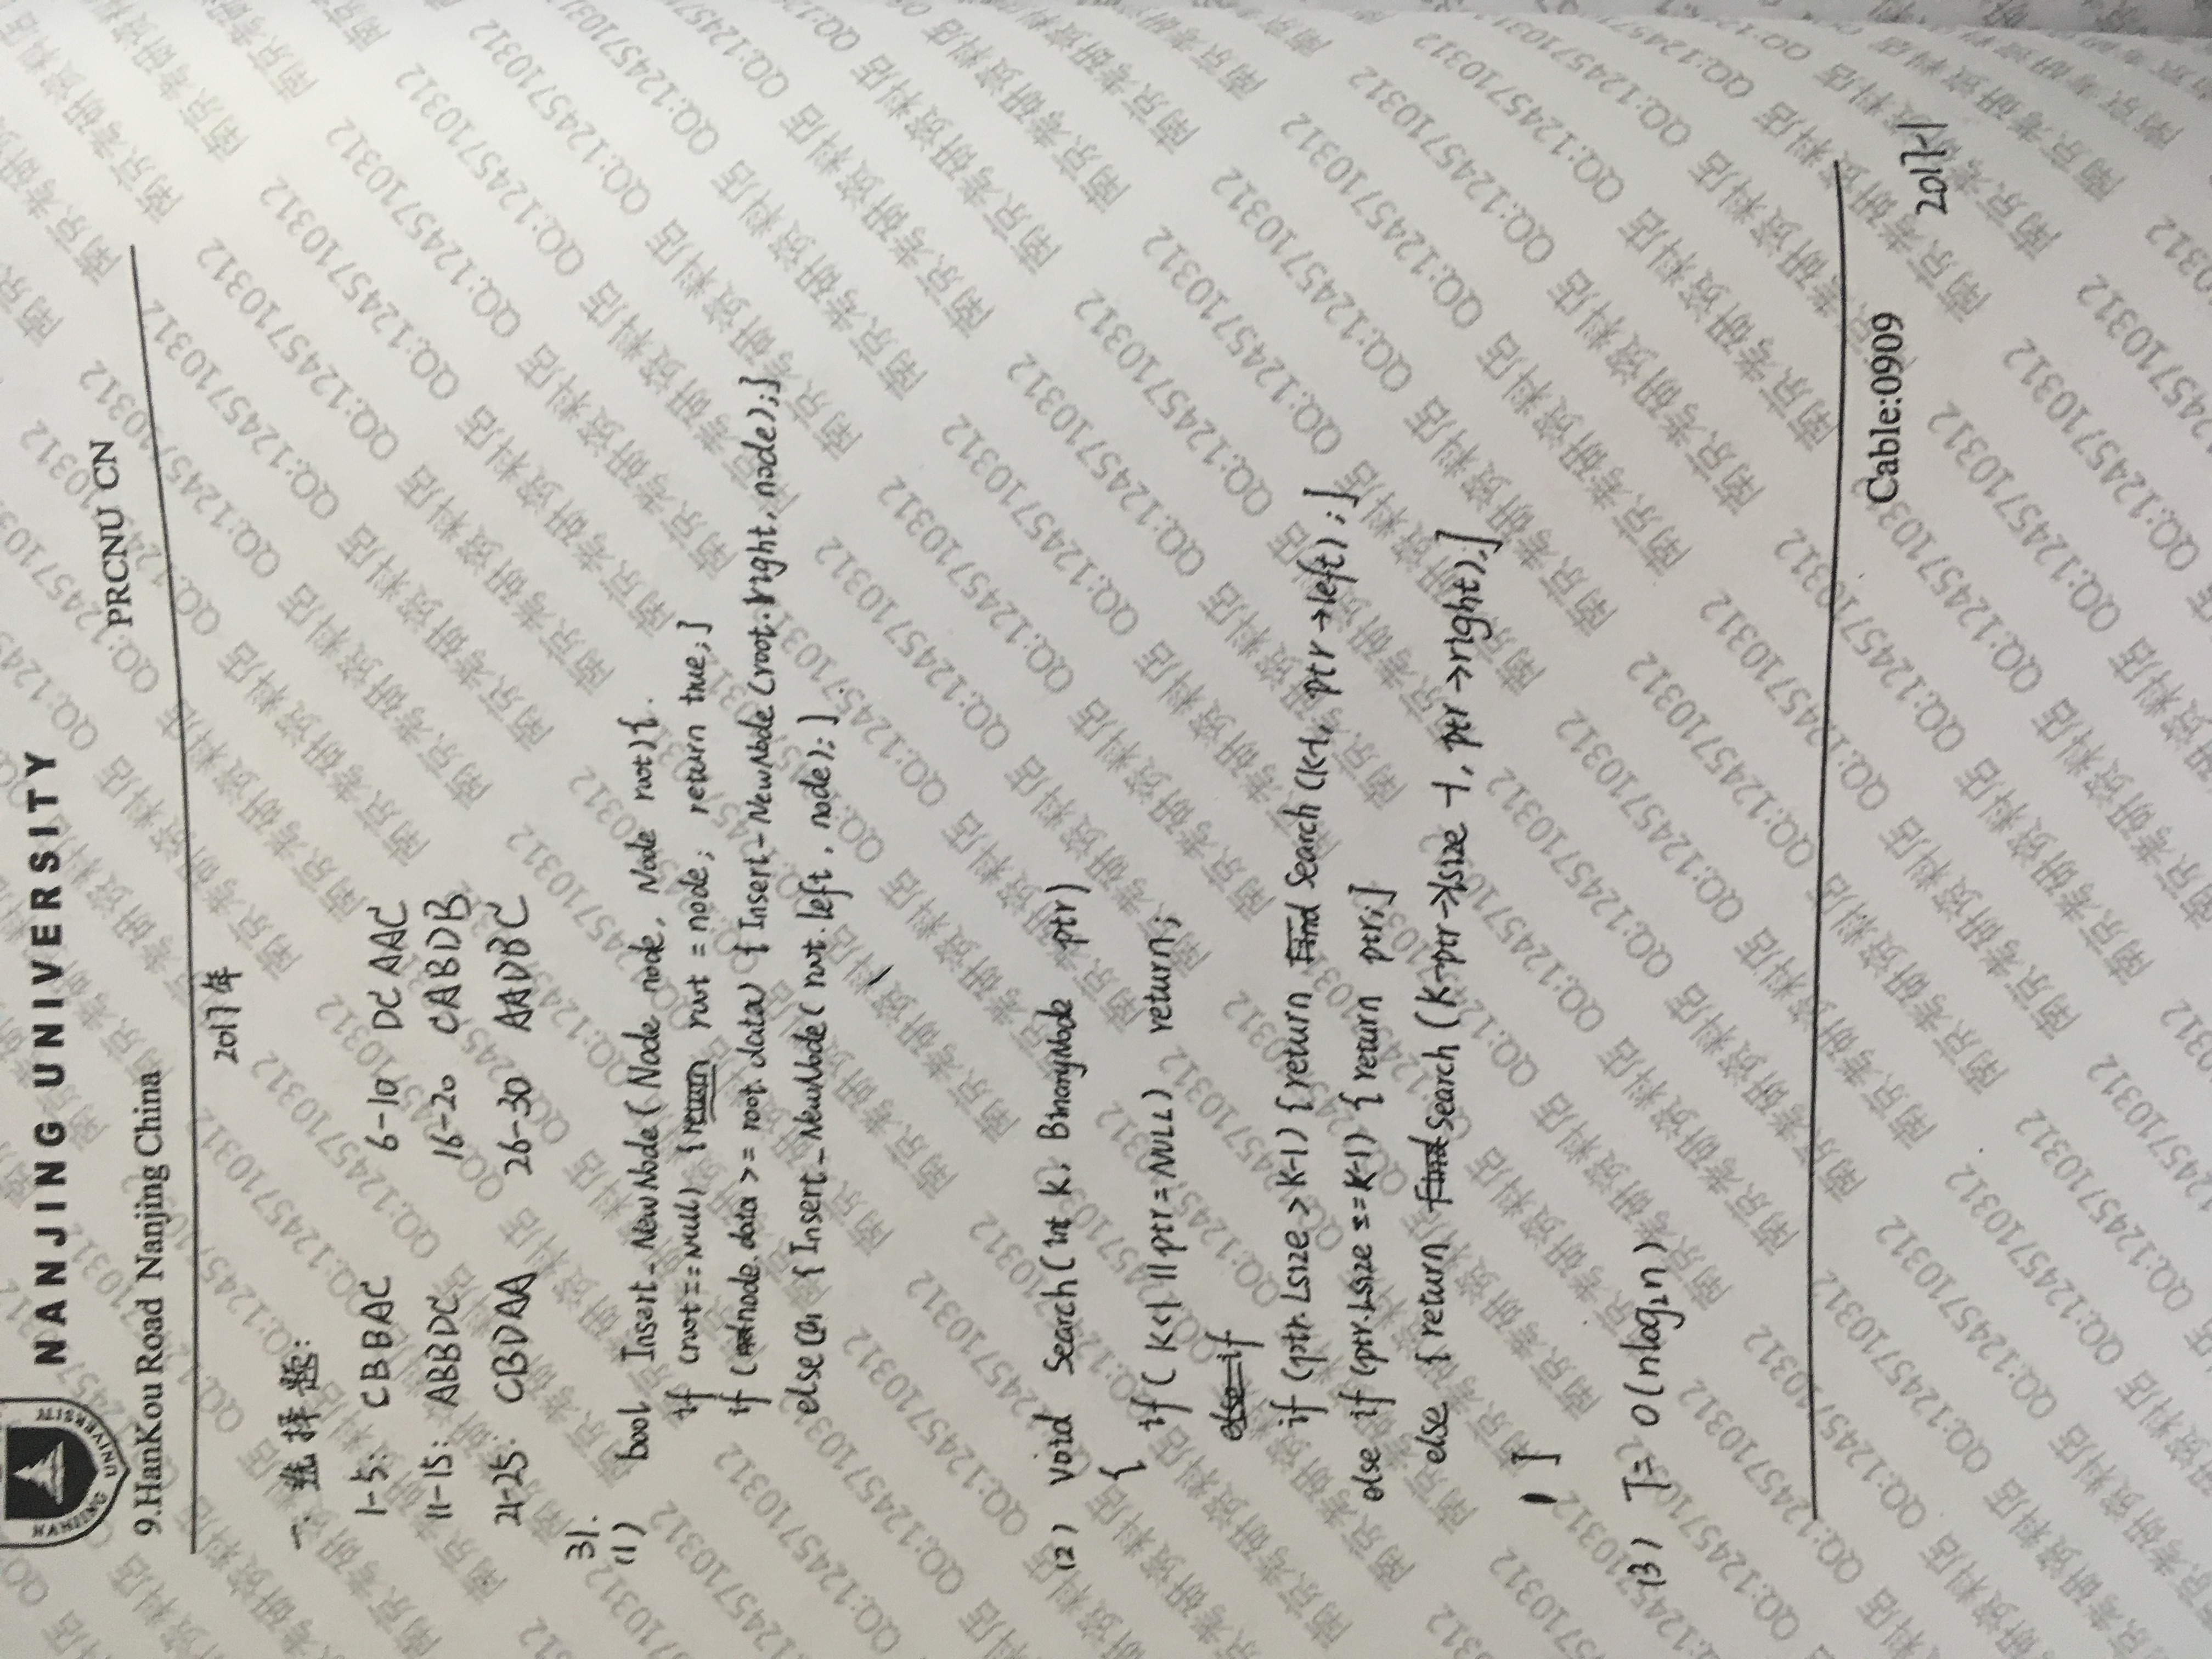 NANJING UNIVERSITY
NANJING UNIVERSITY
9.HanKou Road Nanjing China
PRCNU CN
2017年
一. 选择题:
1-5: CBBAC 6-10 DCAAC
11-15: ABBDC 16-20 CABDB
21-25: CBDAA 26-30 AADBC
31.
(1) bool Insert_NewNode(Node node, Node root){.
if (root==Null) {return root = node; return true;}
if (node.data >= root.data) {Insert_NewNode(root.right, node);}
else {Insert_NewNode(root.left, node);}
(2) void Search(int k, BinaryNode ptr)
{
if( k<1 || ptr=NULL) return;
else if
if (ptr.Lsize > K-1) {return Find Search(K-1, ptr→left);}
else if (ptr.Lsize == K-1) {return ptr;}
else {return Find Search(K-ptr→lsize -1, ptr→right);}
}
(3) T= O(nlog₂n)
Cable:0909
2017-1
南京考研资料店 QQ:1245710312